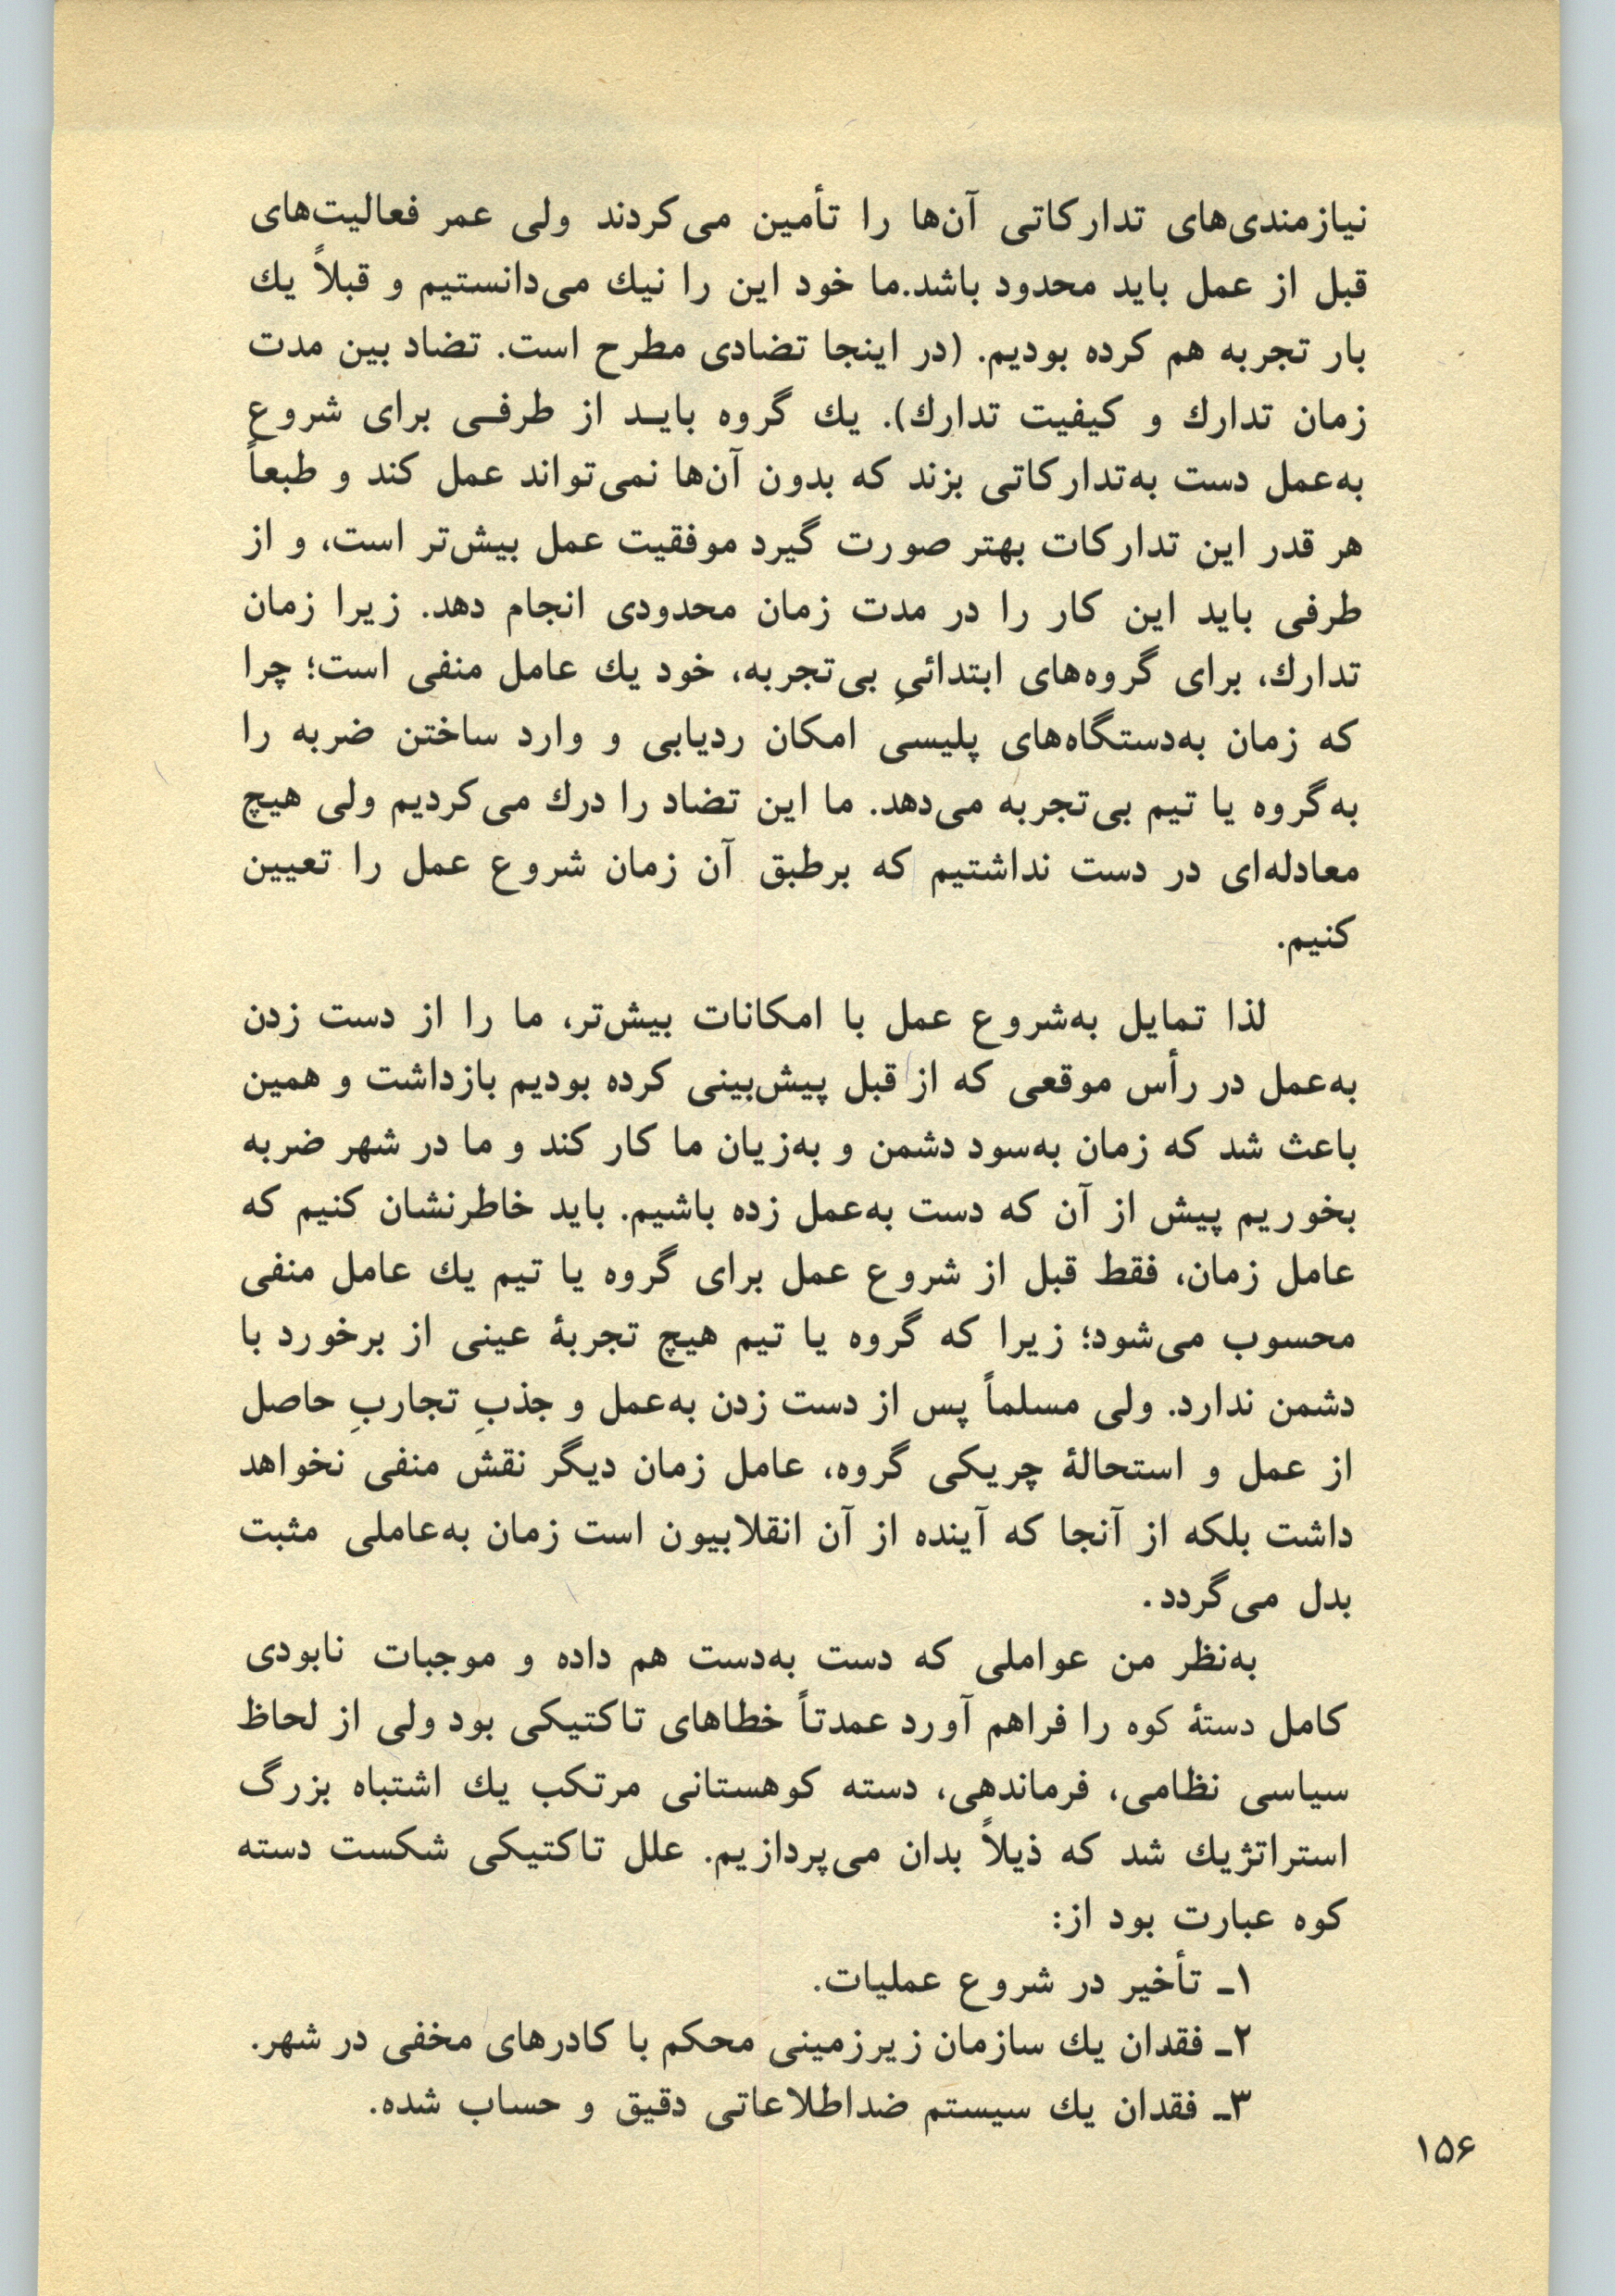 نیازمندی‌های تدارکاتی آن‌ها را تأمین می‌کردند ولی عمر فعالیت‌های
قبل از عمل باید محدود باشد.ما خود این را نیك می‌دانستیم و قبلاً یك
بار تجربه هم کرده بودیم. (در اینجا تضادی مطرح است. تضاد بین مدت
زمان تدارك و کیفیت تدارك). یك گروه بایـد از طرفـی برای شروع
به‌عمل دست به‌تدارکاتی بزند که بدون آن‌ها نمی‌تواند عمل کند و طبعاً
هر قدر این تدارکات بهتر صورت گیرد موفقیت عمل بیش‌تر است، و از
طرفی باید این کار را در مدت زمان محدودی انجام دهد. زیرا زمان
تدارك، برای گروه‌های ابتدائیِ بی‌تجربه، خود یك عامل منفی است؛ چرا
که زمان به‌دستگاه‌های پلیسی امکان ردیابی و وارد ساختن ضربه را
به‌گروه یا تیم بی‌تجربه می‌دهد. ما این تضاد را درك می‌کردیم ولی هیچ
معادله‌ای در دست نداشتیم که برطبق آن زمان شروع عمل را تعیین
کنیم.
لذا تمایل به‌شروع عمل با امکانات بیش‌تر، ما را از دست زدن
به‌عمل در رأس موقعی که از قبل پیش‌بینی کرده بودیم بازداشت و همین
باعث شد که زمان به‌سود دشمن و به‌زیان ما کار کند و ما در شهر ضربه
بخوریم پیش از آن که دست به‌عمل زده باشیم. باید خاطرنشان کنیم که
عامل زمان، فقط قبل از شروع عمل برای گروه یا تیم یك عامل منفی
محسوب می‌شود؛ زیرا که گروه یا تیم هیچ تجربهٔ عینی از برخورد با
دشمن ندارد. ولی مسلماً پس از دست زدن به‌عمل و جذبِ تجاربِ حاصل
از عمل و استحالهٔ چریکی گروه، عامل زمان دیگر نقش منفی نخواهد
داشت بلکه از آنجا که آینده از آن انقلابیون است زمان به‌عاملی مثبت
بدل می‌گردد.
به‌نظر من عواملی که دست به‌دست هم داده و موجبات نابودی
کامل دستهٔ کوه را فراهم آورد عمدتاً خطاهای تاکتیکی بود ولی از لحاظ
سیاسی نظامی، فرماندهی، دسته کوهستانی مرتکب یك اشتباه بزرگ
استراتژیك شد که ذیلاً بدان می‌پردازیم. علل تاکتیکی شکست دسته
کوه عبارت بود از:
۱ـ تأخیر در شروع عملیات.
۲ـ فقدان یك سازمان زیرزمینی محکم با کادرهای مخفی در شهر.
۳ـ فقدان یك سیستم ضداطلاعاتی دقیق و حساب شده.
۱۵۶